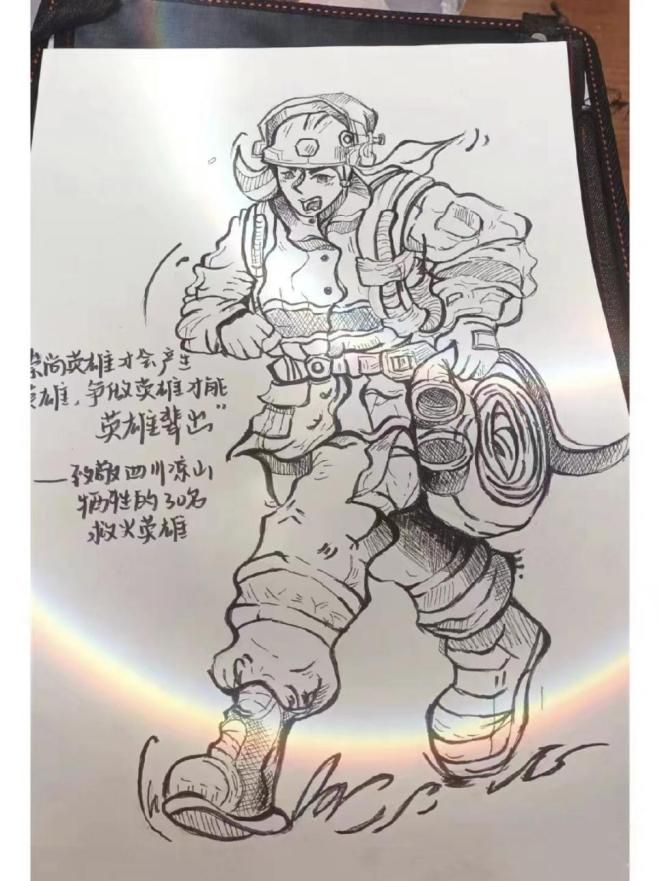 崇尚英雄才会产生
英雄，争做英雄才能
英雄辈出”
——致敬四川凉山
牺牲的30名
救火英雄